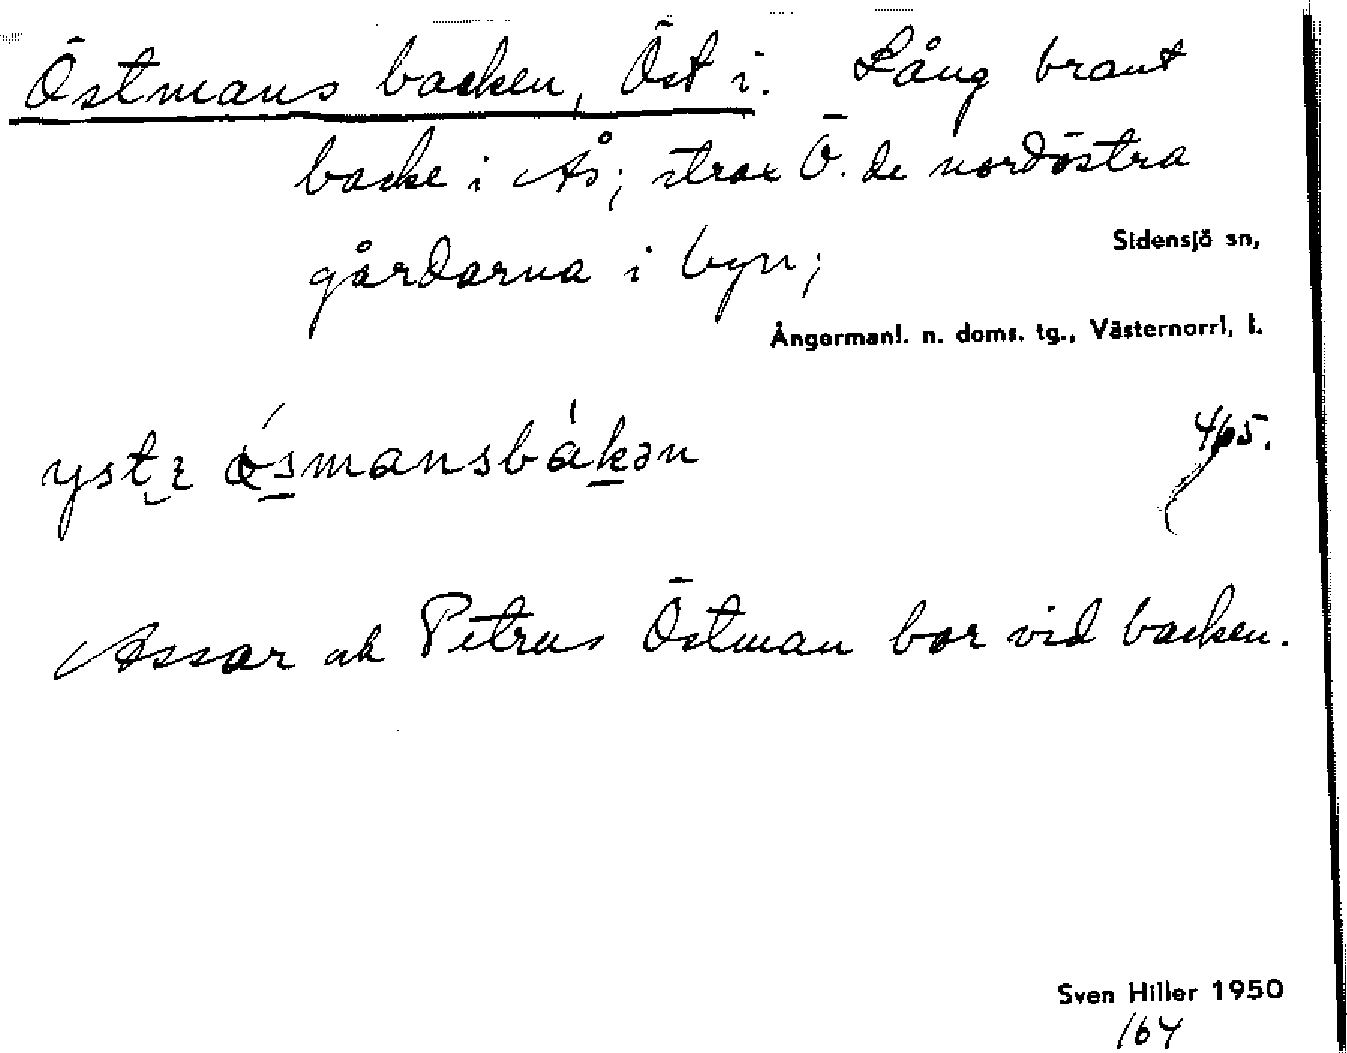 Östmans backen, Öst i. Lång brant
backe i Ås; strax Ö. de nordöstra
gårdarna i byn;
Sidensjö sn,
Ångermanl. n. doms. tg., Västernorrl. l.
465.
Assar och Petrus Östman bor vid backen.
Sven Hiller 1950
164